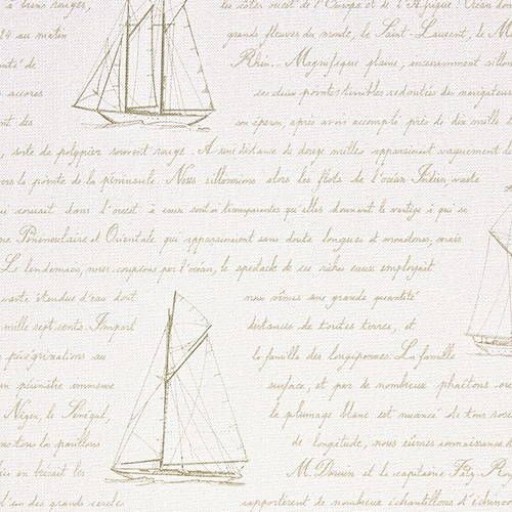 à bras rouges, les côtes ouest de l'Europe et de l'Afrique. Océan dont
24 au matin grands fleuves du monde, le Saint-Laurent, le M
unté de Rhin. Magnifique plaine, incessamment sillon
accores ses deux pointes terribles redoutées des navigateurs
nt des son éperon, après avoir accompli près de dix mille
sorte de polypier souvent rouge. A une distance de douze milles apparaissent vaguement
vers la pointe de la péninsule. Nous sillonnions alors les flots de l'océan Indien, vaste
courait dans l'ouest à eaux sont si transparentes qu'elles donnent le vertige à qui se
Péninsulaire et Orientale qui apparaissent sans doute longues et monotones, mais
Le lendemain, nous coupions par l'océan, le spectacle de ses riches eaux employait
vaste étendue d'eau dont nous vîmes une grande quantité
mille sept cents. Rempart distances de toutes terres, et
pérégrinations au la famille des longipennes. La famille
périmètre immense surface, et par de nombreux phaétons
Niger, le Sénégal, le plumage blanc est nuancé de tons roses
les pavillons de longitude, nous eûmes connaissance
M. Darwin et le capitaine Fitz-Roy
sur des grands cercles rapportèrent de nombreux échantillons d'échinod